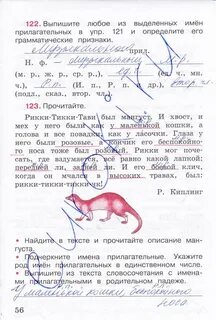 122. Выпишите любое из выделенных имён
прилагательных в упр. 121 и определите его
грамматические признаки.
прил.
Н. ф. –
(м. р., ж. р., ср. р.)
(ед. ч., мн. ч.)
(подл., сказ., втор. чл.)
123. Прочитайте.
Рикки-Тикки-Тави был мангуст. И хвост, и
мех у него были как у маленькой кошки, а
голова и все повадки – как у ласочки. Глаза у
него были розовые, и кончик его беспокойно-
го носа тоже был розовый. Рикки мог поче-
сать, где вздумается, всё равно какой лапкой:
передней ли, задней ли. И его боевой клич,
когда он мчался в высоких травах, был:
рикки-тикки-тикки
Р. Киплинг
• Найдите в тексте и прочитайте описание ман-
густа.
• Подчеркните имена прилагательные. Укажите
род имён прилагательных в единственном числе.
• Выпишите из текста словосочетания с имена-
ми прилагательными в родительном падеже.
маленькой кошки,
носа
56